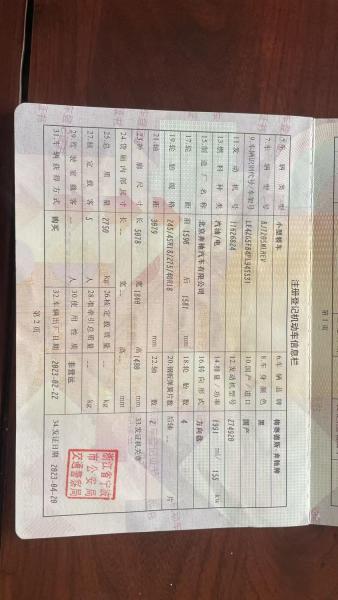 第 1 页
注册登记机动车信息栏
5.车辆类型 小型轿车 6.车辆品牌 梅赛德斯-奔驰牌
7.车辆型号 8.车身颜色 黑
9.车辆识别代号/车架号 10.国产/进口 国产
11.发动机号 11626824 12.发动机型号 274920
13.燃料种类 汽油/电 14.排量/功率 1991 ml/ 155 kw
15.制造厂名称 北京奔驰汽车有限公司 16.转向形式 方向盘
17.轮距 前 1598 后 1581 mm 18.轮胎数 4
19.轮胎规格 20.钢板弹簧片数 后轴 片
21.轴距 3079 mm 22.轴数 2
23.外廓尺寸 长 5078 宽 1860 高 1480 mm
24.货厢内部尺寸 长 宽 高 mm
25.总质量 2750 kg 26.核定载质量 kg
27.核定载客 5 人 28.准牵引总质量 kg
29.驾驶室载客 人 30.使用性质 非营运
31.车辆获得方式 购买 32.车辆出厂日期 2023-02-22
33.发证机关章
浙江省宁波
市公安局
交通警察局
34.发证日期 2023-04-20
第 2 页